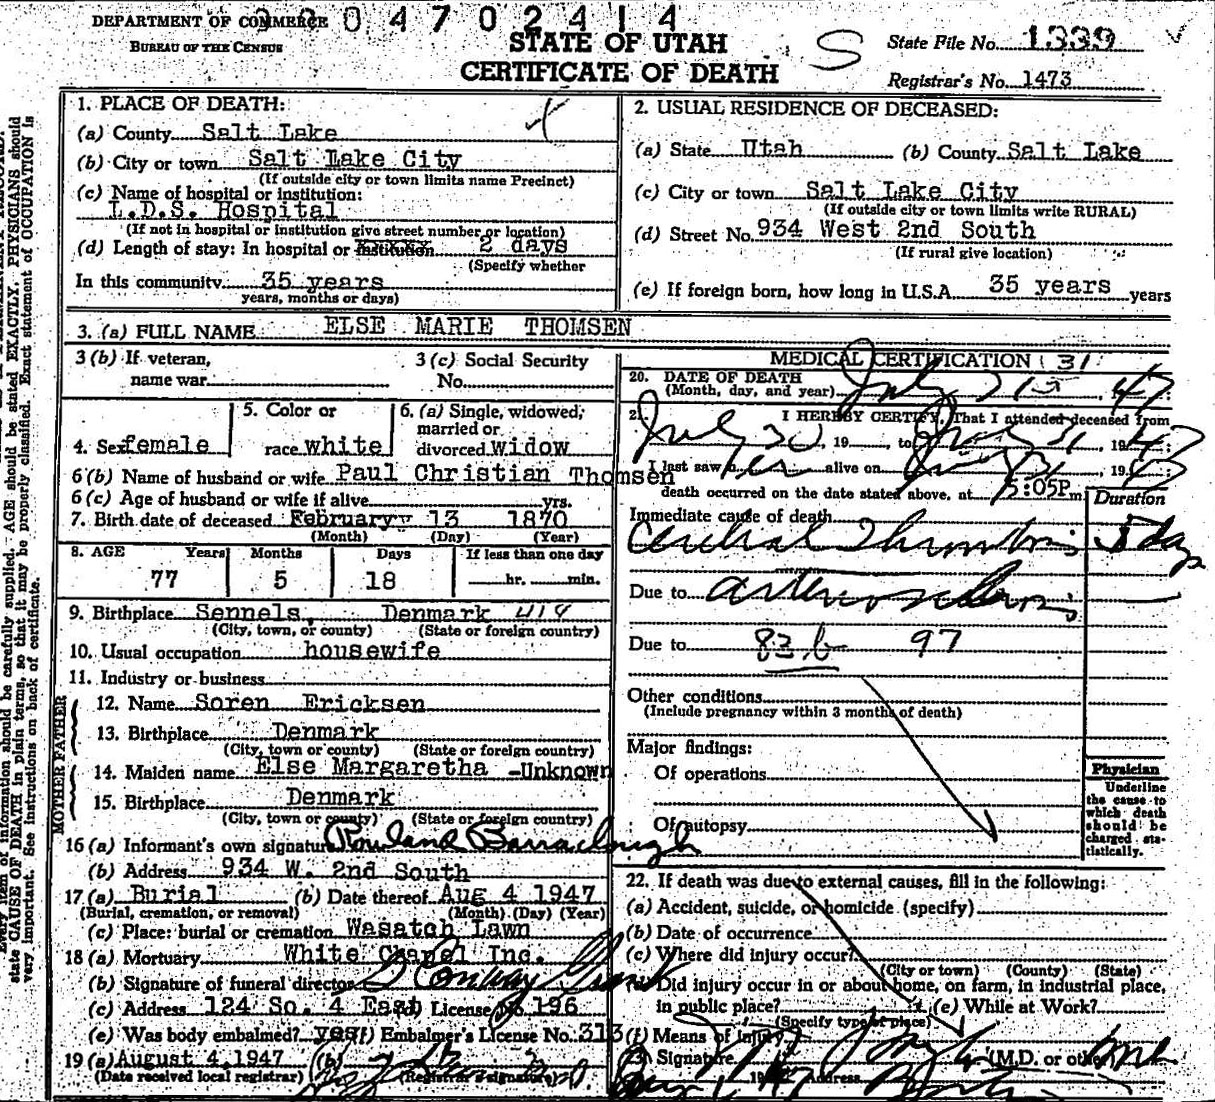 DEPARTMENT OF COMMERCE
BUREAU OF THE CENSUS
4702414
STATE OF UTAH
CERTIFICATE OF DEATH
S
State File No. 1339
Registrar's No. 1473
1. PLACE OF DEATH:
(a) County Salt Lake
(b) City or town Salt Lake City
(If outside city or town limits name Precinct)
(c) Name of hospital or institution:
L.D.S. Hospital
(If not in hospital or institution give street number or location)
(d) Length of stay: In hospital or institution 2 days
(Specify whether
In this community 35 years
years, months or days)
2. USUAL RESIDENCE OF DECEASED:
(a) State Utah (b) County Salt Lake
(c) City or town Salt Lake City
(If outside city or town limits write RURAL)
(d) Street No. 934 West 2nd South
(If rural give location)
(e) If foreign born, how long in U.S.A. 35 years years
3. (a) FULL NAME ELSE MARIE THOMSEN
3 (b) If veteran,
name war
3 (c) Social Security
No.
4. Sex female
5. Color or
race white
6. (a) Single, widowed,
married or
divorced widow
6 (b) Name of husband or wife Paul Christian Thomsen
6 (c) Age of husband or wife if alive yrs.
7. Birth date of deceased February 13 1870
(Month) (Day) (Year)
8. AGE Years Months Days If less than one day
77 5 18 hr. min.
9. Birthplace Sennels, Denmark 414
(City, town, or county) (State or foreign country)
10. Usual occupation housewife
11. Industry or business
FATHER
12. Name Soren Ericksen
13. Birthplace Denmark
(City, town or county) (State or foreign country)
MOTHER
14. Maiden name Else Margaretha -Unknown
15. Birthplace Denmark
(City, town or county) (State or foreign country)
16 (a) Informant's own signature Rowland Barraclough
(b) Address 934 W. 2nd South
17 (a) Burial (b) Date thereof Aug 4 1947
(Burial, cremation, or removal) (Month) (Day) (Year)
(c) Place: burial or cremation Wasatch Lawn
18 (a) Mortuary White Chapel Inc.
(b) Signature of funeral director
(c) Address 124 So. 4 East (d) License No. 196
(e) Was body embalmed? yes (f) Embalmer's License No. 313
19 (a) August 4, 1947 (b)
(Date received local registrar) (Registrar's signature)
MEDICAL CERTIFICATION 31
20. DATE OF DEATH
(Month, day, and year) July 31 47
21. I HEREBY CERTIFY, That I attended deceased from
July 30, 19 to July 31 1947
I last saw her alive on July 31 1947
death occurred on the date stated above, at 5:05P m
Duration
Immediate cause of death
Cerebral Thrombosis 5 days
Due to arteriosclerosis
Due to 83 b 97
Other conditions
(Include pregnancy within 3 months of death)
Major findings:
Of operations
Of autopsy
Physician
Underline
the cause to
which death
should be
charged sta-
tistically.
22. If death was due to external causes, fill in the following:
(a) Accident, suicide, or homicide (specify)
(b) Date of occurrence
(c) Where did injury occur?
(City or town) (County) (State)
(d) Did injury occur in or about home, on farm, in industrial place,
in public place? (e) While at Work?
(Specify type of place)
(f) Means of injury
23. Signature (M.D. or other)
Address
AGE should be stated EXACTLY. PHYSICIANS should
state CAUSE OF DEATH in plain terms, so that it may be properly classified. Exact statement of OCCUPATION is
very important. See instructions on back of certificate.
Every item of information should be carefully supplied.